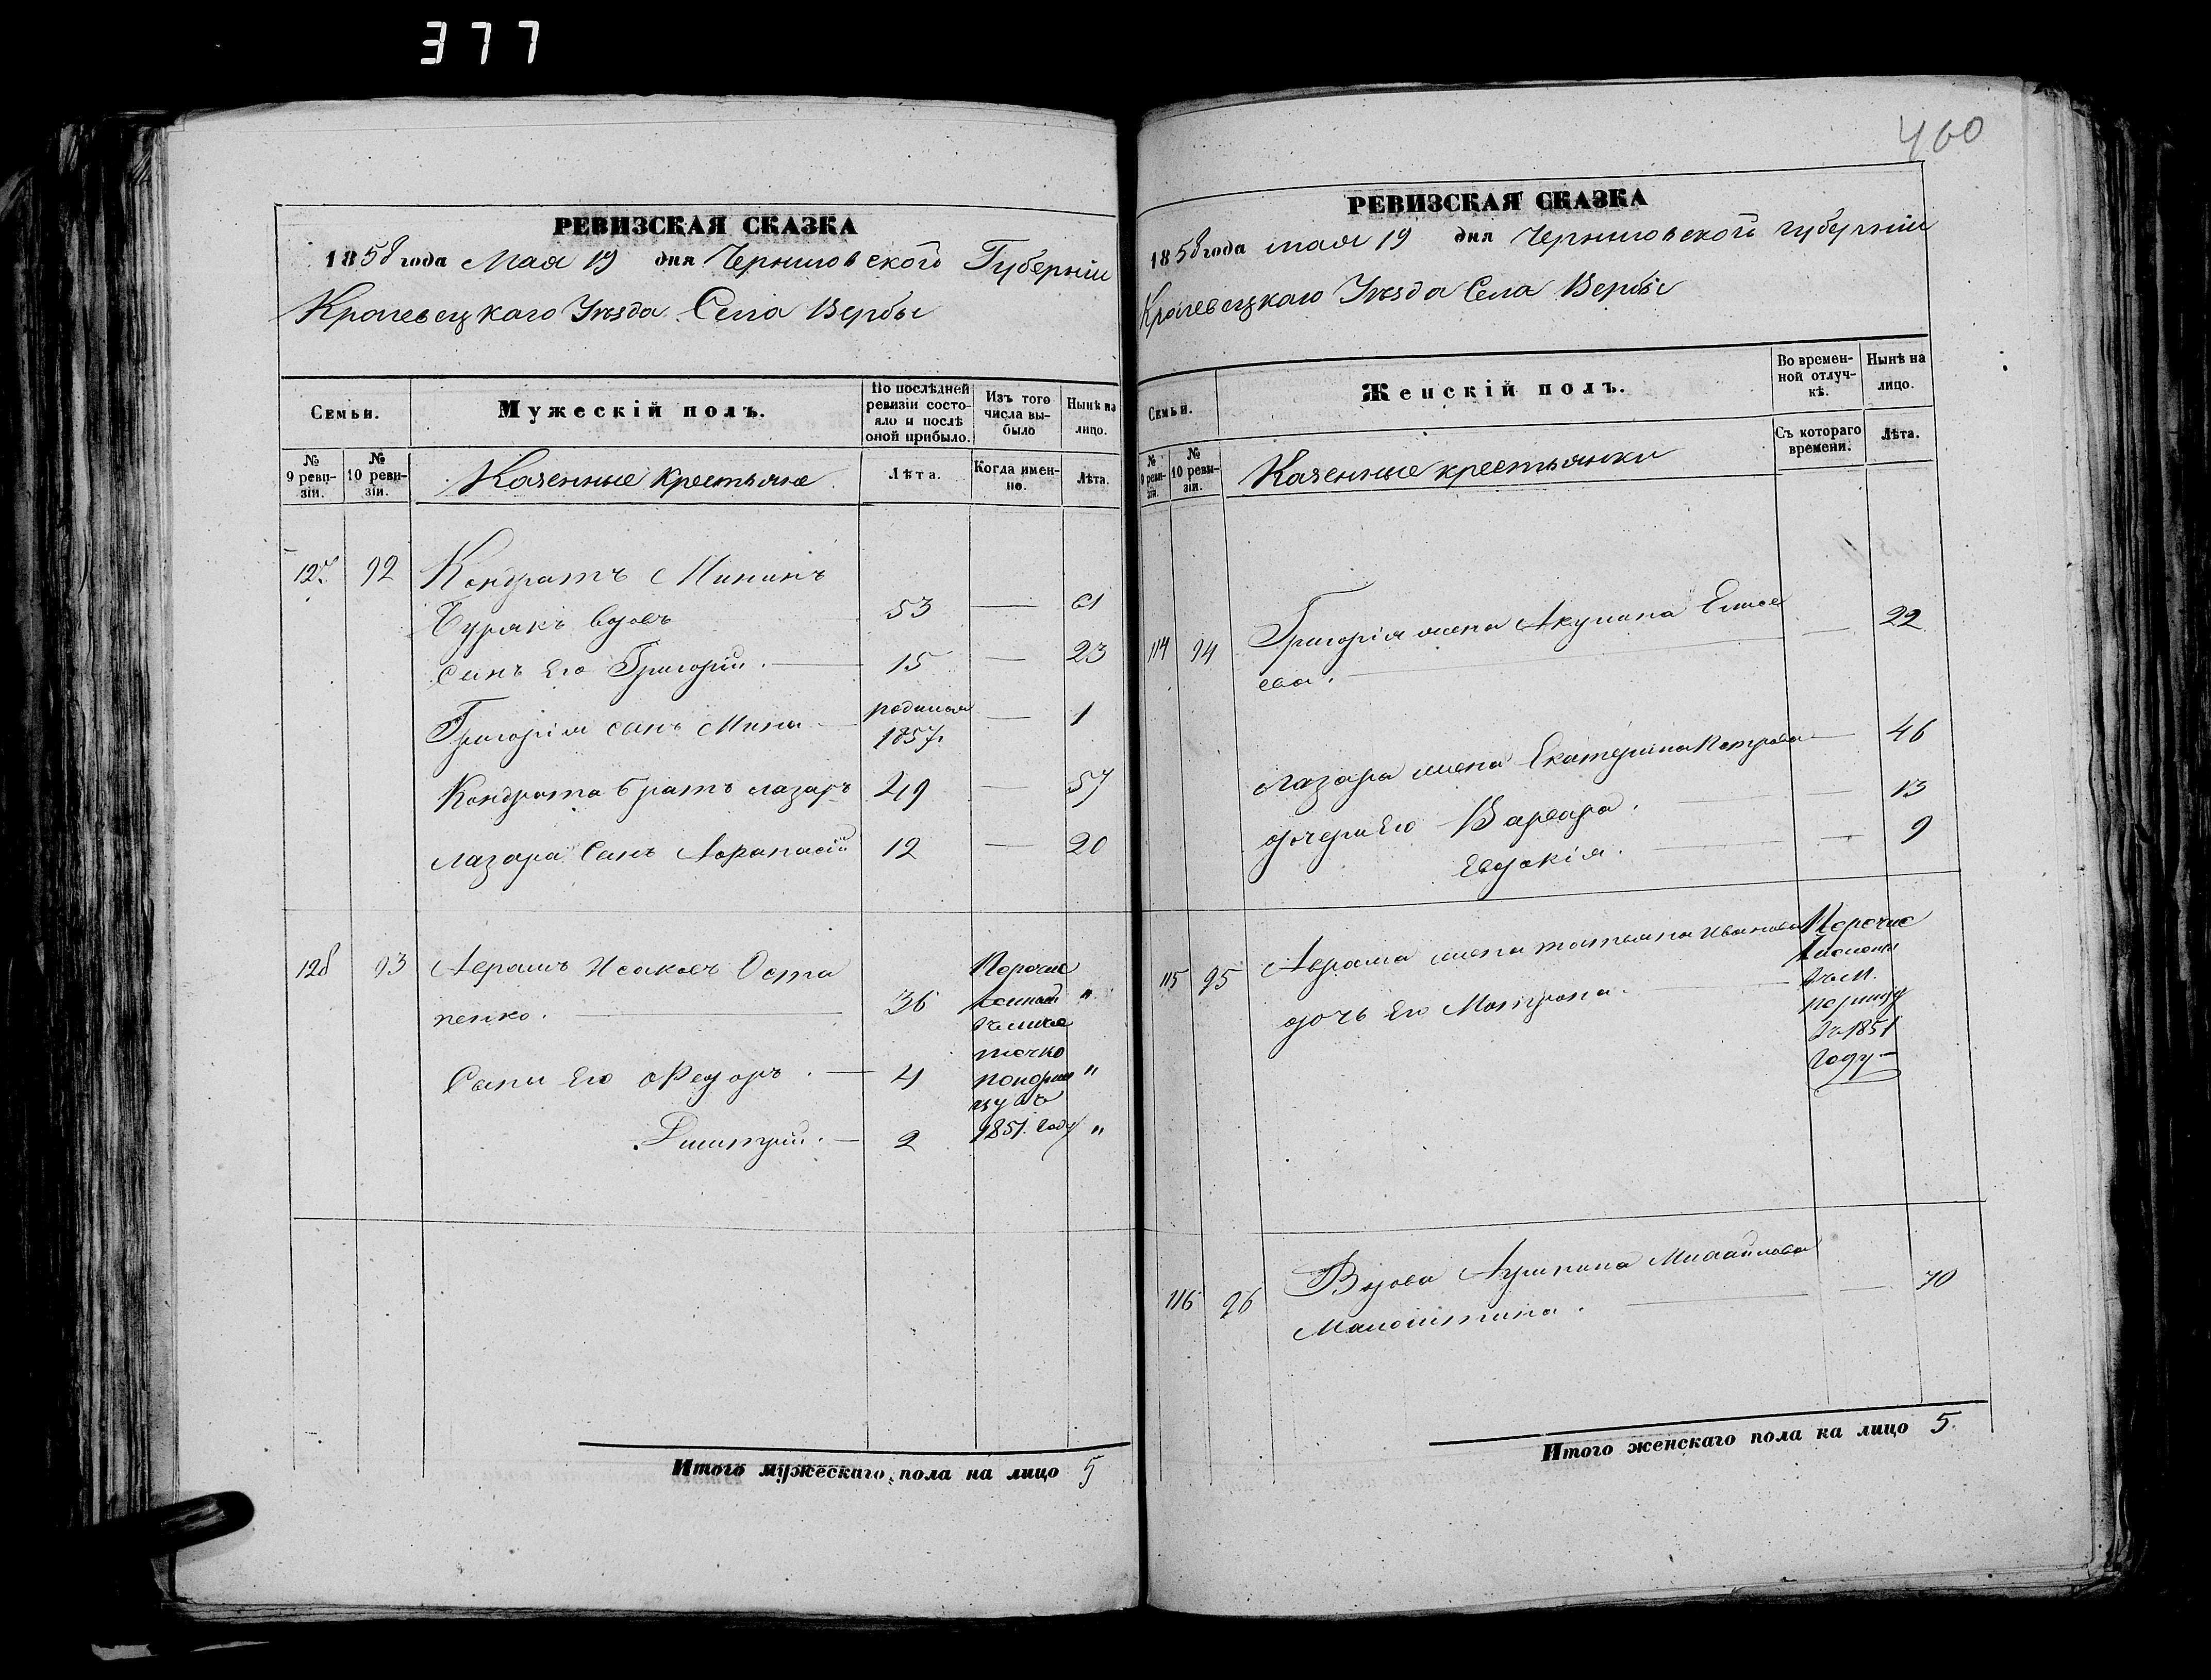 377
460
РЕВИЗСКАЯ СКАЗКА
1858 года Мая 19 дня Черниговской Губерніи
Кролевецкаго Уезда Села Вербы
Семьи.
Мужескій полъ.
По послѣдней ревизіи состояло и послѣ оной прибыло.
Изъ того числа выбыло
Нынѣ на лицо.
№ 9 ревизіи.
№ 10 ревизіи.
Казенные крестьяне
Лѣта.
Когда именно.
Лѣта.
127 92 Кондратъ Мининъ
Бурякъ вдовъ 53 — 61
Сынъ Его Григорій. — 15 — 23
Григорія сынъ Мина — родился 1857г. — 1
Кондрата братъ лазарь 49 — 57
лазара Сынъ Афанасій 12 — 20
128 93 Аврамъ Исаковъ Оста
пенко. — 36 "
Сыны Его Ѳедоръ. — 4 "
Дмитрій. — 2 "
Перечис
1851. году
Итого мужескаго пола на лицо 5
РЕВИЗСКАЯ СКАЗКА
1858 года мая 19 дня Черниговской губерніи
Кролевецкаго Уезда Села Вербы
Семьи.
Женскій полъ.
Во временной отлучкѣ.
Нынѣ на лицо.
№ 9 ревизіи.
№ 10 ревизіи.
Казенные крестьянки
Съ котораго времени.
Лѣта.
114 94 Григорія жена Акулина Елисе
ева. — 22
лазара жена Екатерина Петрова — 46
дочери Его Варвара. — 13
Евдокія. — 9
115 95 Аврама жена татьяна Иванова
дочь Его Матрона. —
Перечис
въ 1851
году —
116 96 Вдова Агрипина Михайлова
— 70
Итого женскаго пола на лицо 5.